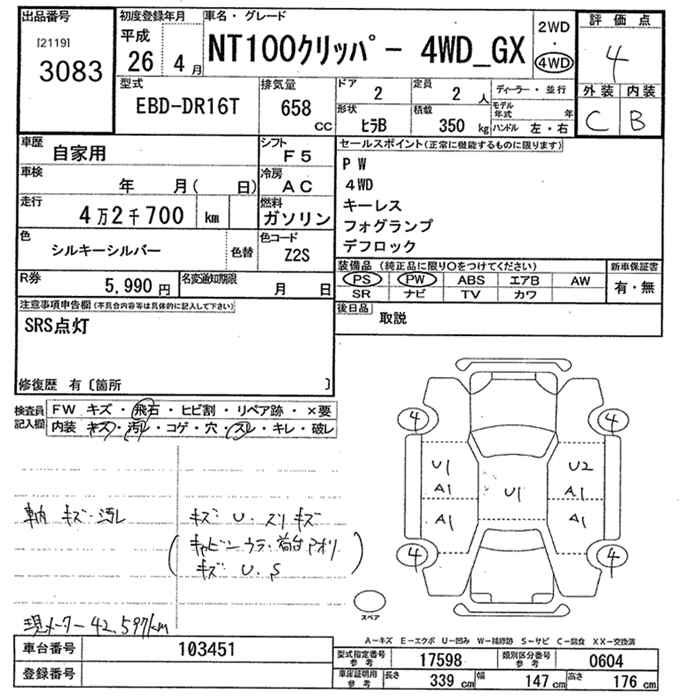 出品番号
[2119]
3083
初度登録年月
平成
26年 4月
車名・グレード
NT100クリッパー 4WD_GX
2WD
・
4WD
評価点
4
外装 内装
C B
型式
EBD-DR16T
排気量
658 cc
ドア
2
定員
2 人
ディーラー・並行
モデル年式 年
ハンドル 左・右
形状
ヒラB
積載
350 kg
車歴
自家用
シフト
F5
車検
年 月( 日)
冷房
AC
走行
4万2千700 km
燃料
ガソリン
色
シルキーシルバー
色替
色コード
Z2S
R券
5,990円
名変通知期限
月 日
セールスポイント(正常に機能するものに限ります)
PW
4WD
キーレス
フォグランプ
デフロック
装備品 (純正品に限り○をつけてください)
PS PW ABS エアB AW
SR ナビ TV カワ
新車保証書
有・無
後日品
取説
注意事項申告欄(不具合内容等は具体的に記入して下さい)
SRS点灯
修復歴 有〔箇所 〕
検査員記入欄
FW キズ・飛石・ヒビ割・リペア跡・×要
内装 キズ・汚れ・コゲ・穴・スレ・キレ・破レ
車内 キズ・汚レ
キズ U・スリキズ
(キャビンウラ・荷台アオリ)
キズ U・S
現メーター 42,597km
4 4
U1 U2
A1 U1 A1
A1 A1
4 4
スペア
A-キズ E-エクボ U-凹み W-補修跡 S-サビ C-腐食 XX-交換済
車台番号
103451
登録番号
型式指定番号 参考
17598
類別区分番号 参考
0604
車庫証明用 参考
長さ 339 cm 幅 147 cm 高さ 176 cm